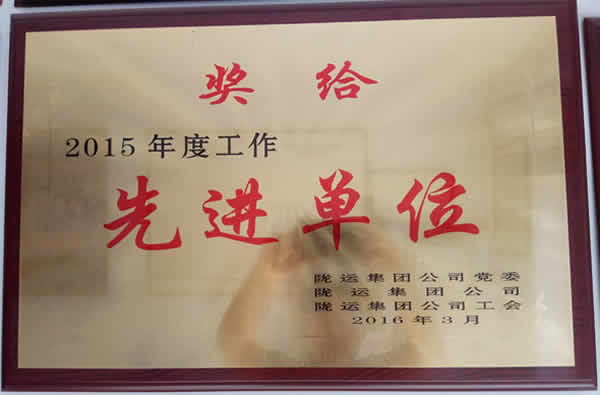 奖给
2015年度工作
先进单位
陇运集团公司党委
陇运集团公司
陇运集团公司工会
2016年3月